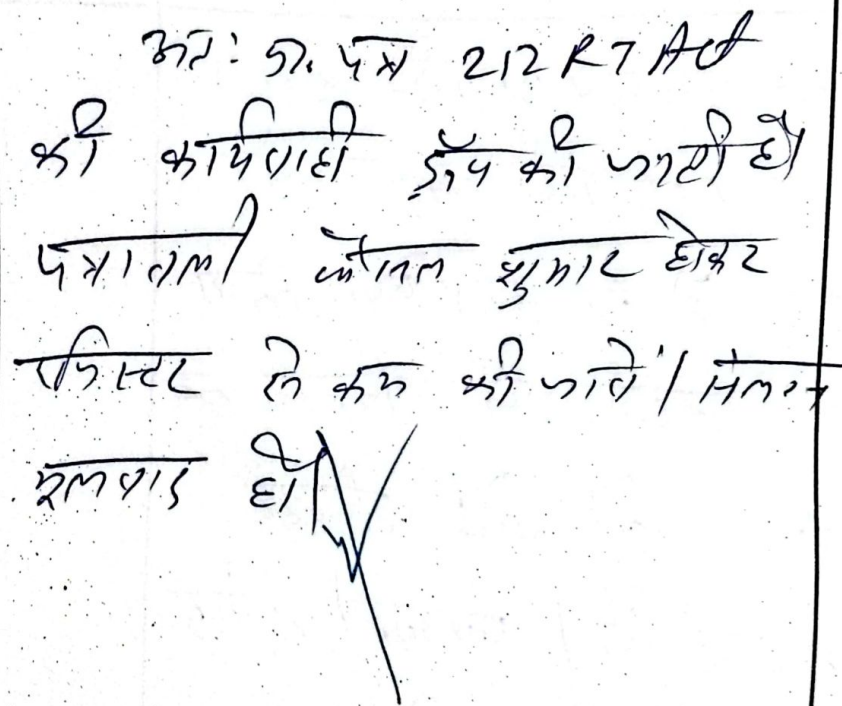 अतः प्रा. पत्र 212 RT Act
की कार्यवाही ड्रॉप की जाती है।
पत्रावली फैसल शुमार होकर
रजिस्टर से कम की जावे। संलग्न
मूलवाद हो।